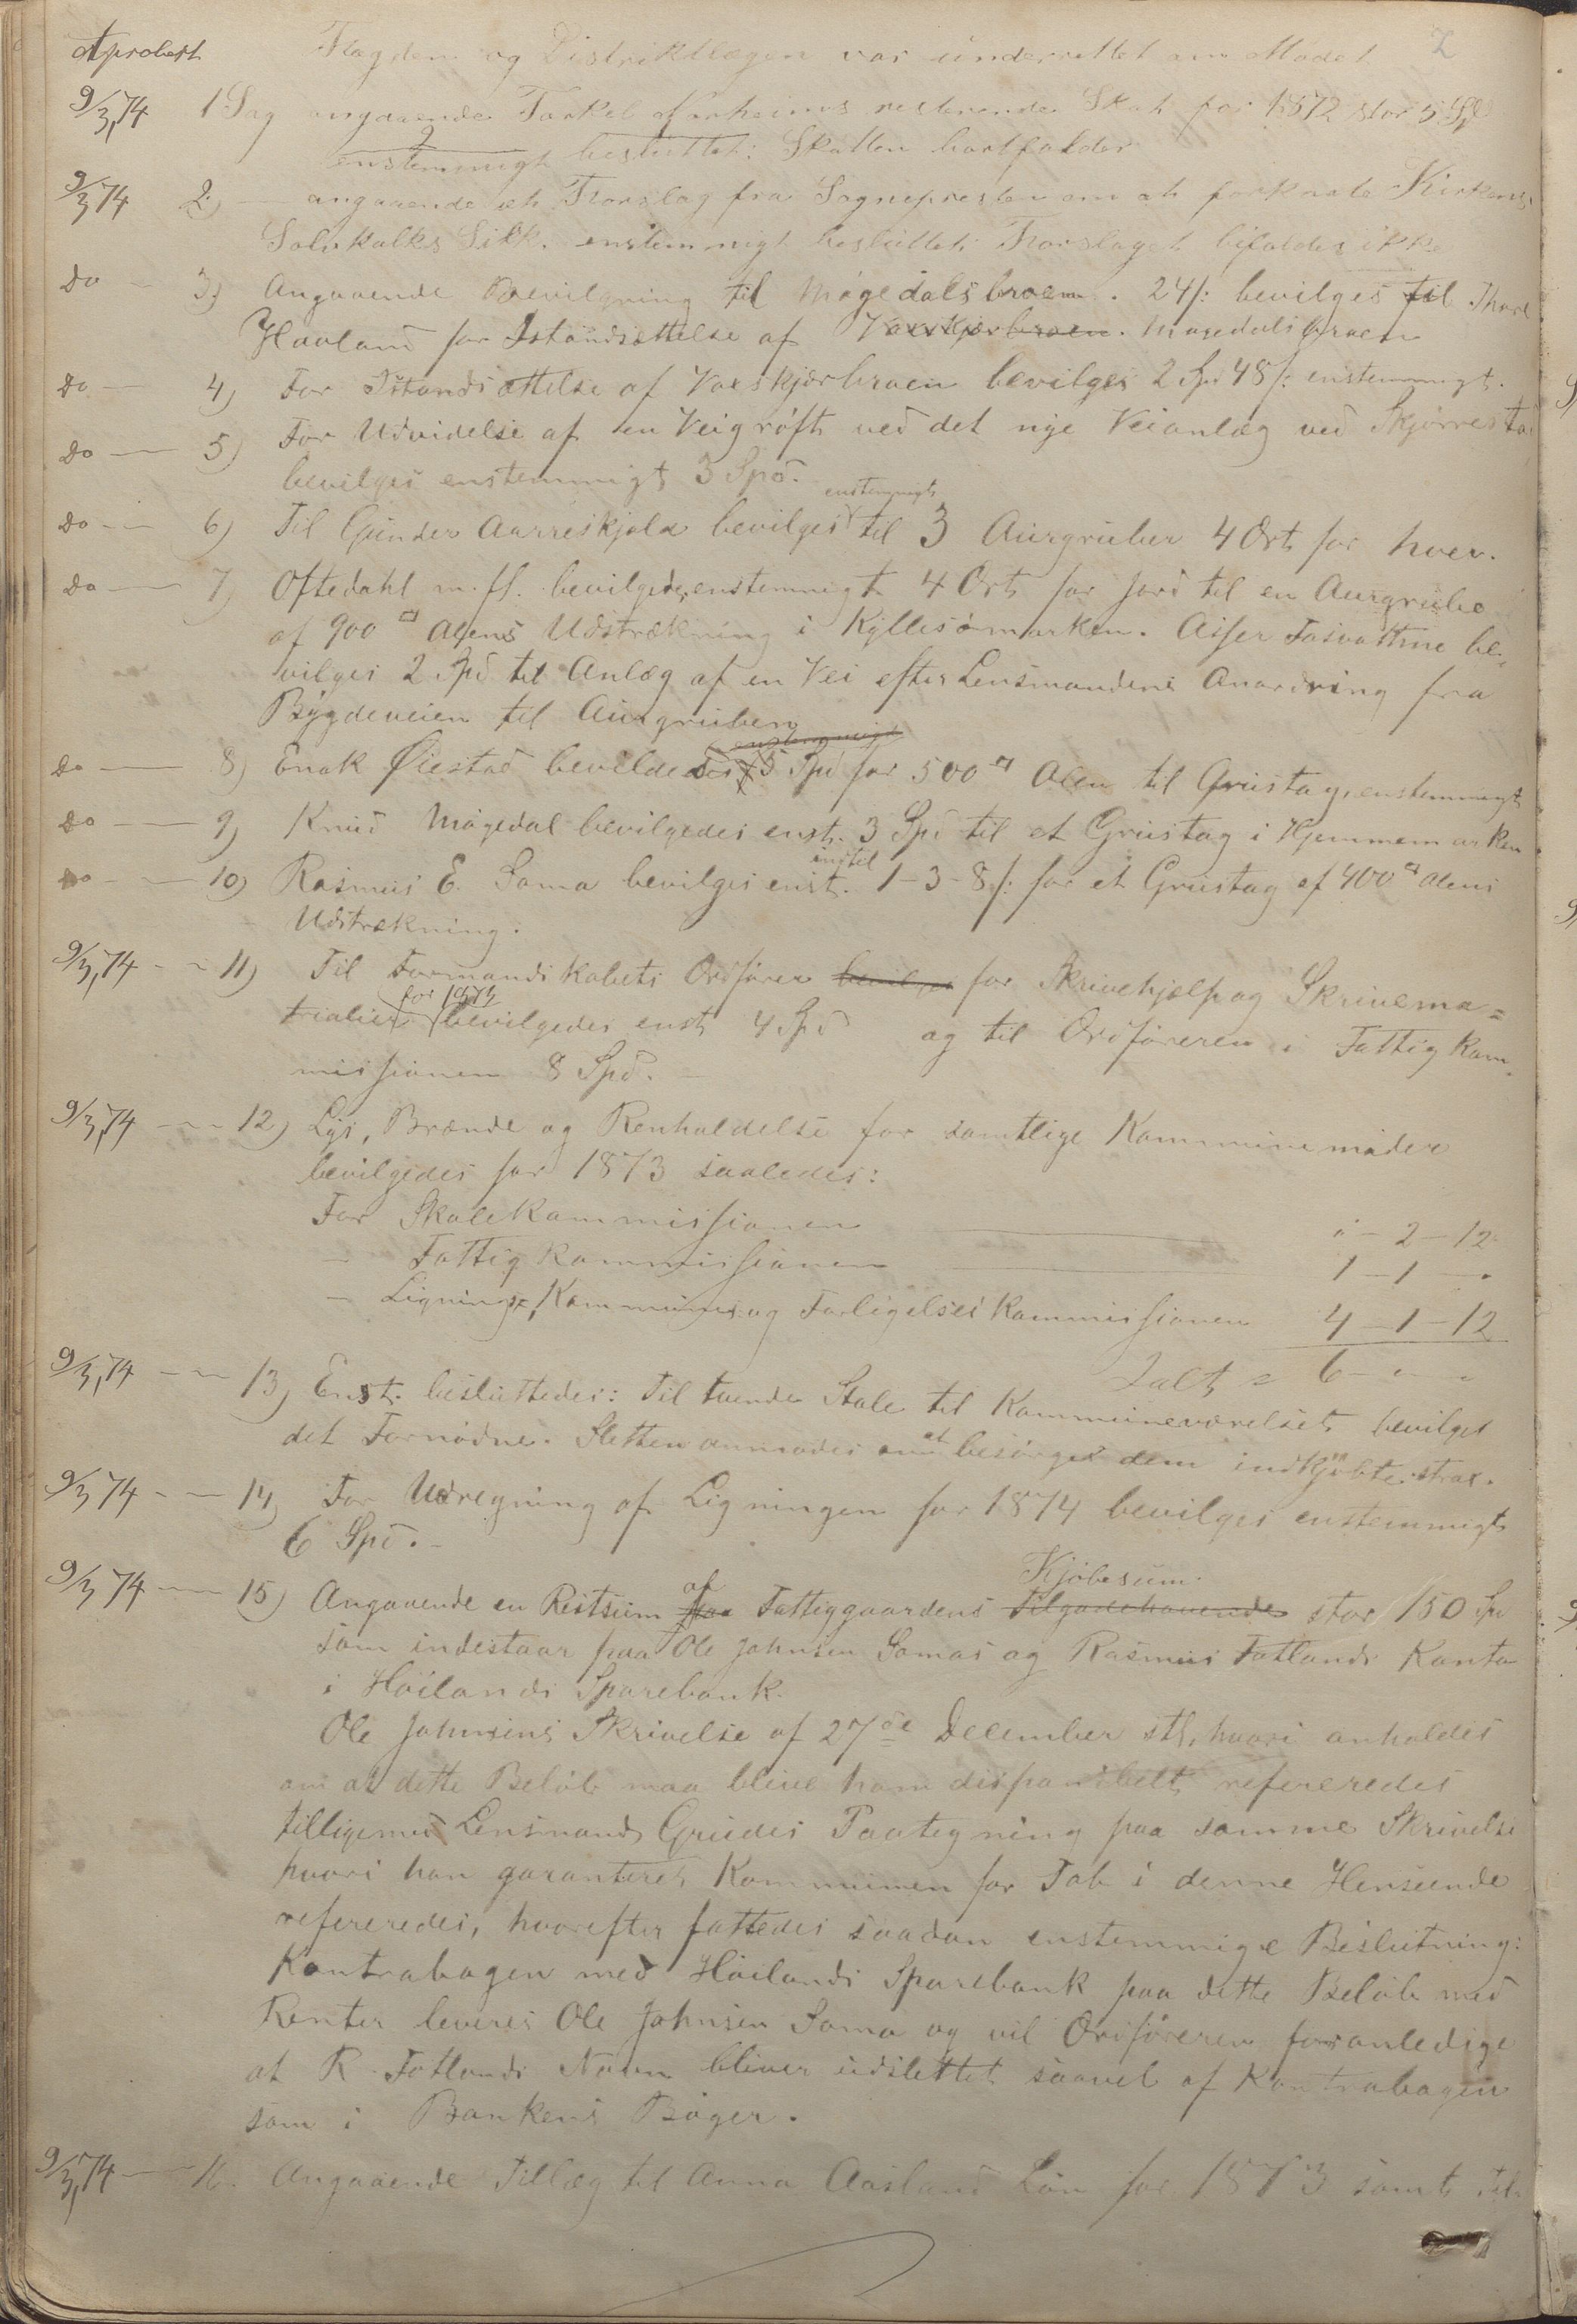 Aprobert Fogden og Distriktlægen var underrettet om Mødet 2
9/3,74 1 Sag angaaende Torkel resterende Skat for 1872 stor 5 Spd
enstemmigt besluttet: Skatten bortfalder
9/3 74 2) — angaaende et Forslag fra Sognepresten om at Kirkens
Enstemmigt besluttet: Forslaget bifaldes ikke
Do — 3) Angaaende Bevilgning til Møgedalsbroen. 24/: bevilges til
Haaland for Istandsættelse af Vaxskjærbroen. Møgedalsbroen
Do — 4) For Istandsættelse af Vaxskjærbroen bevilges 2 Spd 48/: enstemmigt.
Do — 5) For Udvidelse af en Veigrøft ved det nye Veianlæg ved Skjørrestad
bevilges enstemmigt 3 Spd.
Do — 6) Til Gunder Aarreskjold bevilges enstemmigt til 3 Aurgruber 4 Ort for hver.
Do — 7) Oftedahl m. fl. bevilgedes enstemmigt 4 Ort for Jord til en Aurgrube
af 900 □ Alens Udstrækning i Kyllesömarken. be-
vilges 2 Spd til Anlæg af en Vei efter Lensmandens Anordning fra
Bygdeveien til Aurgruben
Do — 8) Enok Øiestad bevildedes enstemmigt 5 Spd for 500 □ Alen til Grustag, enstemmigt
Do — 9) Knud Møgedal bevilgedes enst. 3 Spd til et Grustag i Hjemmemarken
Do — 10) Rasmus E. Soma bevilges enst. indtil 1-3-8/: for et Grustag af 400 □ Alens
Udstrækning.
9/3,74 — 11) Til Formandskabets Ordfører bevilges for Skrivehjælp og Skrivema=
trialier for 1873 bevilgedes enst 4 Spd og til Ordføreren i Fattigkom-
missionen 8 Spd. —
9/3,74 — 12) Lys, Brænde og Renholdelse for samtlige Kommunemøder
bevilgedes for 1873 saaledes:
For Skolekommissionen " - 2 - 12
— Fattigkommissionen 1 - 1 - "
— Lignings, Kommune og Forligelseskommissionen 4 - 1 - 12
Ialt = 6 - " - "
9/3,74 — 13) Enst. besluttedes: Til tvende Stole til Kommuneværelset bevilges
det Fornødne. Sletten anmodes om at besørge dem indkjøbte strax.
9/3 74 — 14) For Udregning af Ligningen for 1874 bevilges enstemmigt
6 Spd. —
9/3 74 — 15) Angaaende en Restsum af Fattiggaardens Tilgodehavende Kjøbesum stor 150 Spd
som indestaar paa Ole Johnsen Somas og Rasmus Fotlands Konto
i Høilands Sparebank.
Ole Johnsens Skrivelse af 27de December sth, hvori anholdes
om at dette Beløb maa blive ham disponibelt refereredes
tilligemed Lensmand Grudes Paategning paa samme Skrivelse
hvori han garanterer Kommunen for Tab i denne Henseende
refereredes, hvorefter fattedes saadan enstemmige Beslutning:
Kontrabogen med Høilands Sparebank paa dette Beløb med
Renter leveres Ole Johnsen Soma og vil Ordføreren foranledige
at R. Fotlands Navn bliver udslettet saavel af Kontrabogen
som i Bankens Bøger.
9/3,74 — 16. Angaaende Tillæg til Anna Aaslands Løn for 1873 samt